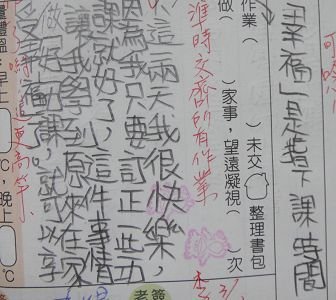 幸福」是下課時間
作業（　）未交　整理書包
做（　）家事，望遠凝視（　）次
準時交齊所有作業
這兩天我很快樂，
因為我只要訂正一些功
課就好了，這件事情
讓我學到原來在家
做好功課，就可以享
受幸福
量體溫：早上　℃，晚上　℃
老簽